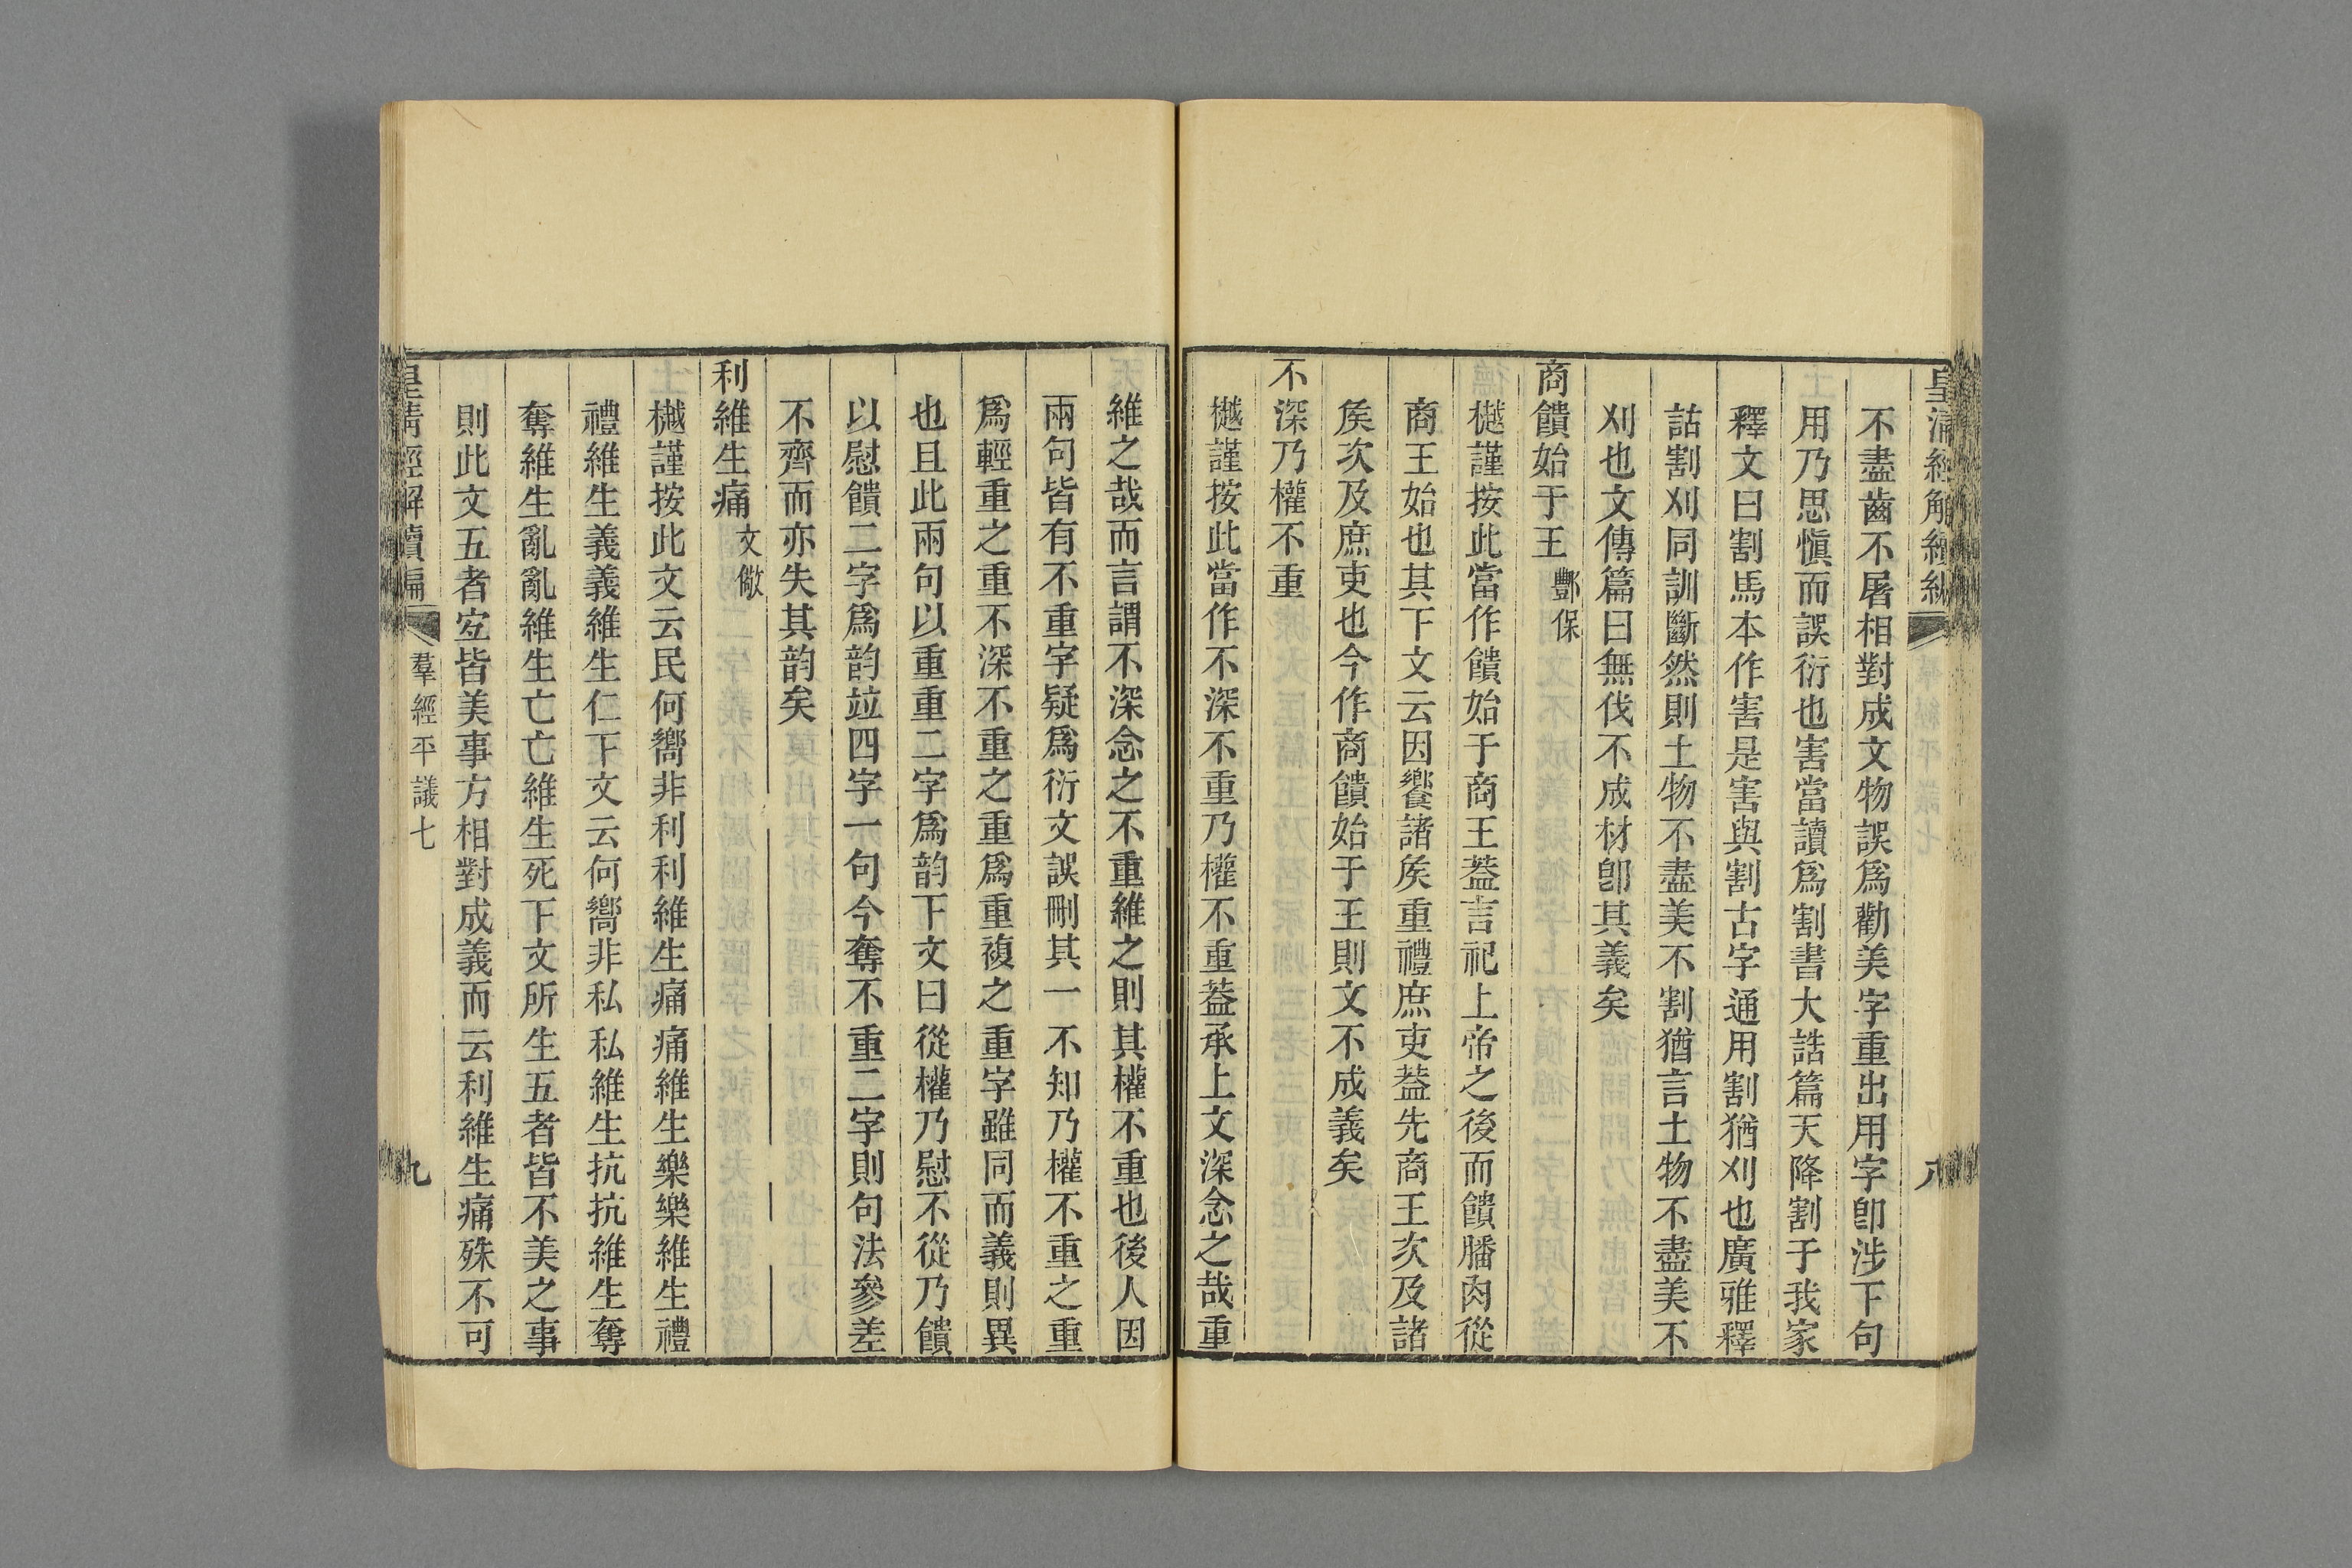 皇清經解續編 羣經平議七 八
不盡齒不屠相對成文物誤爲勸美字重出用字卽涉下句
用乃思愼而誤衍也害當讀爲割書大誥篇天降割于我家
釋文曰割馬本作害是害與割古字通用割猶刈也廣雅釋
詁割刈同訓斷然則土物不盡美不割猶言土物不盡美不
刈也文傳篇曰無伐不成材卽其義矣
商饋始于王 酆保
樾謹按此當作饋始于商王葢言祀上帝之後而饋膰肉從
商王始也其下文云因饗諸矦重禮庶吏葢先商王次及諸
矦次及庶吏也今作商饋始于王則文不成義矣
不深乃權不重
樾謹按此當作不深不重乃權不重葢承上文深念之哉重
維之哉而言謂不深念之不重維之則其權不重也後人因
兩句皆有不重字疑爲衍文誤刪其一不知乃權不重之重
爲輕重之重不深不重之重爲重複之重字雖同而義則異
也且此兩句以重重二字爲韵下文曰從權乃慰不從乃饋
以慰饋二字爲韵竝四字一句今奪不重二字則句法參差
不齊而亦失其韵矣
利維生痛 文儆
樾謹按此文云民何嚮非利利維生痛痛維生樂樂維生禮
禮維生義義維生仁下文云何嚮非私私維生抗抗維生奪
奪維生亂亂維生亡亡維生死下文所生五者皆不美之事
則此文五者宐皆美事方相對成義而云利維生痛殊不可
皇清經解續編 羣經平議七 九